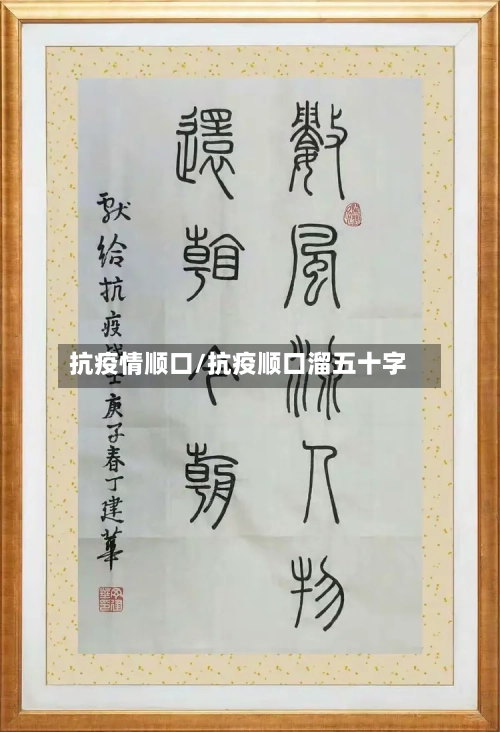 數風流人物
還看今朝
献给抗疫战士庚子春丁建華
抗疫情顺口/抗疫顺口溜五十字